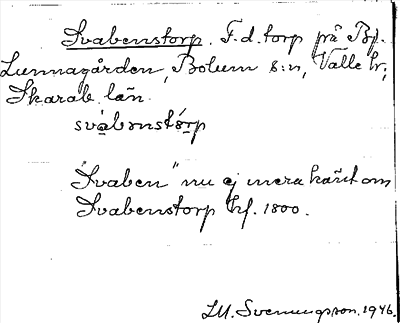 Svabenstorp. F.d. torp på Bj.
Lunnagården, Bolum s:n, Valle hr,
Skarab. län.
svàbənstórp
"Svaben" nu ej mera känt om
Svabenstorp kf. 1800.
I.M. Svenningsson. 1946.